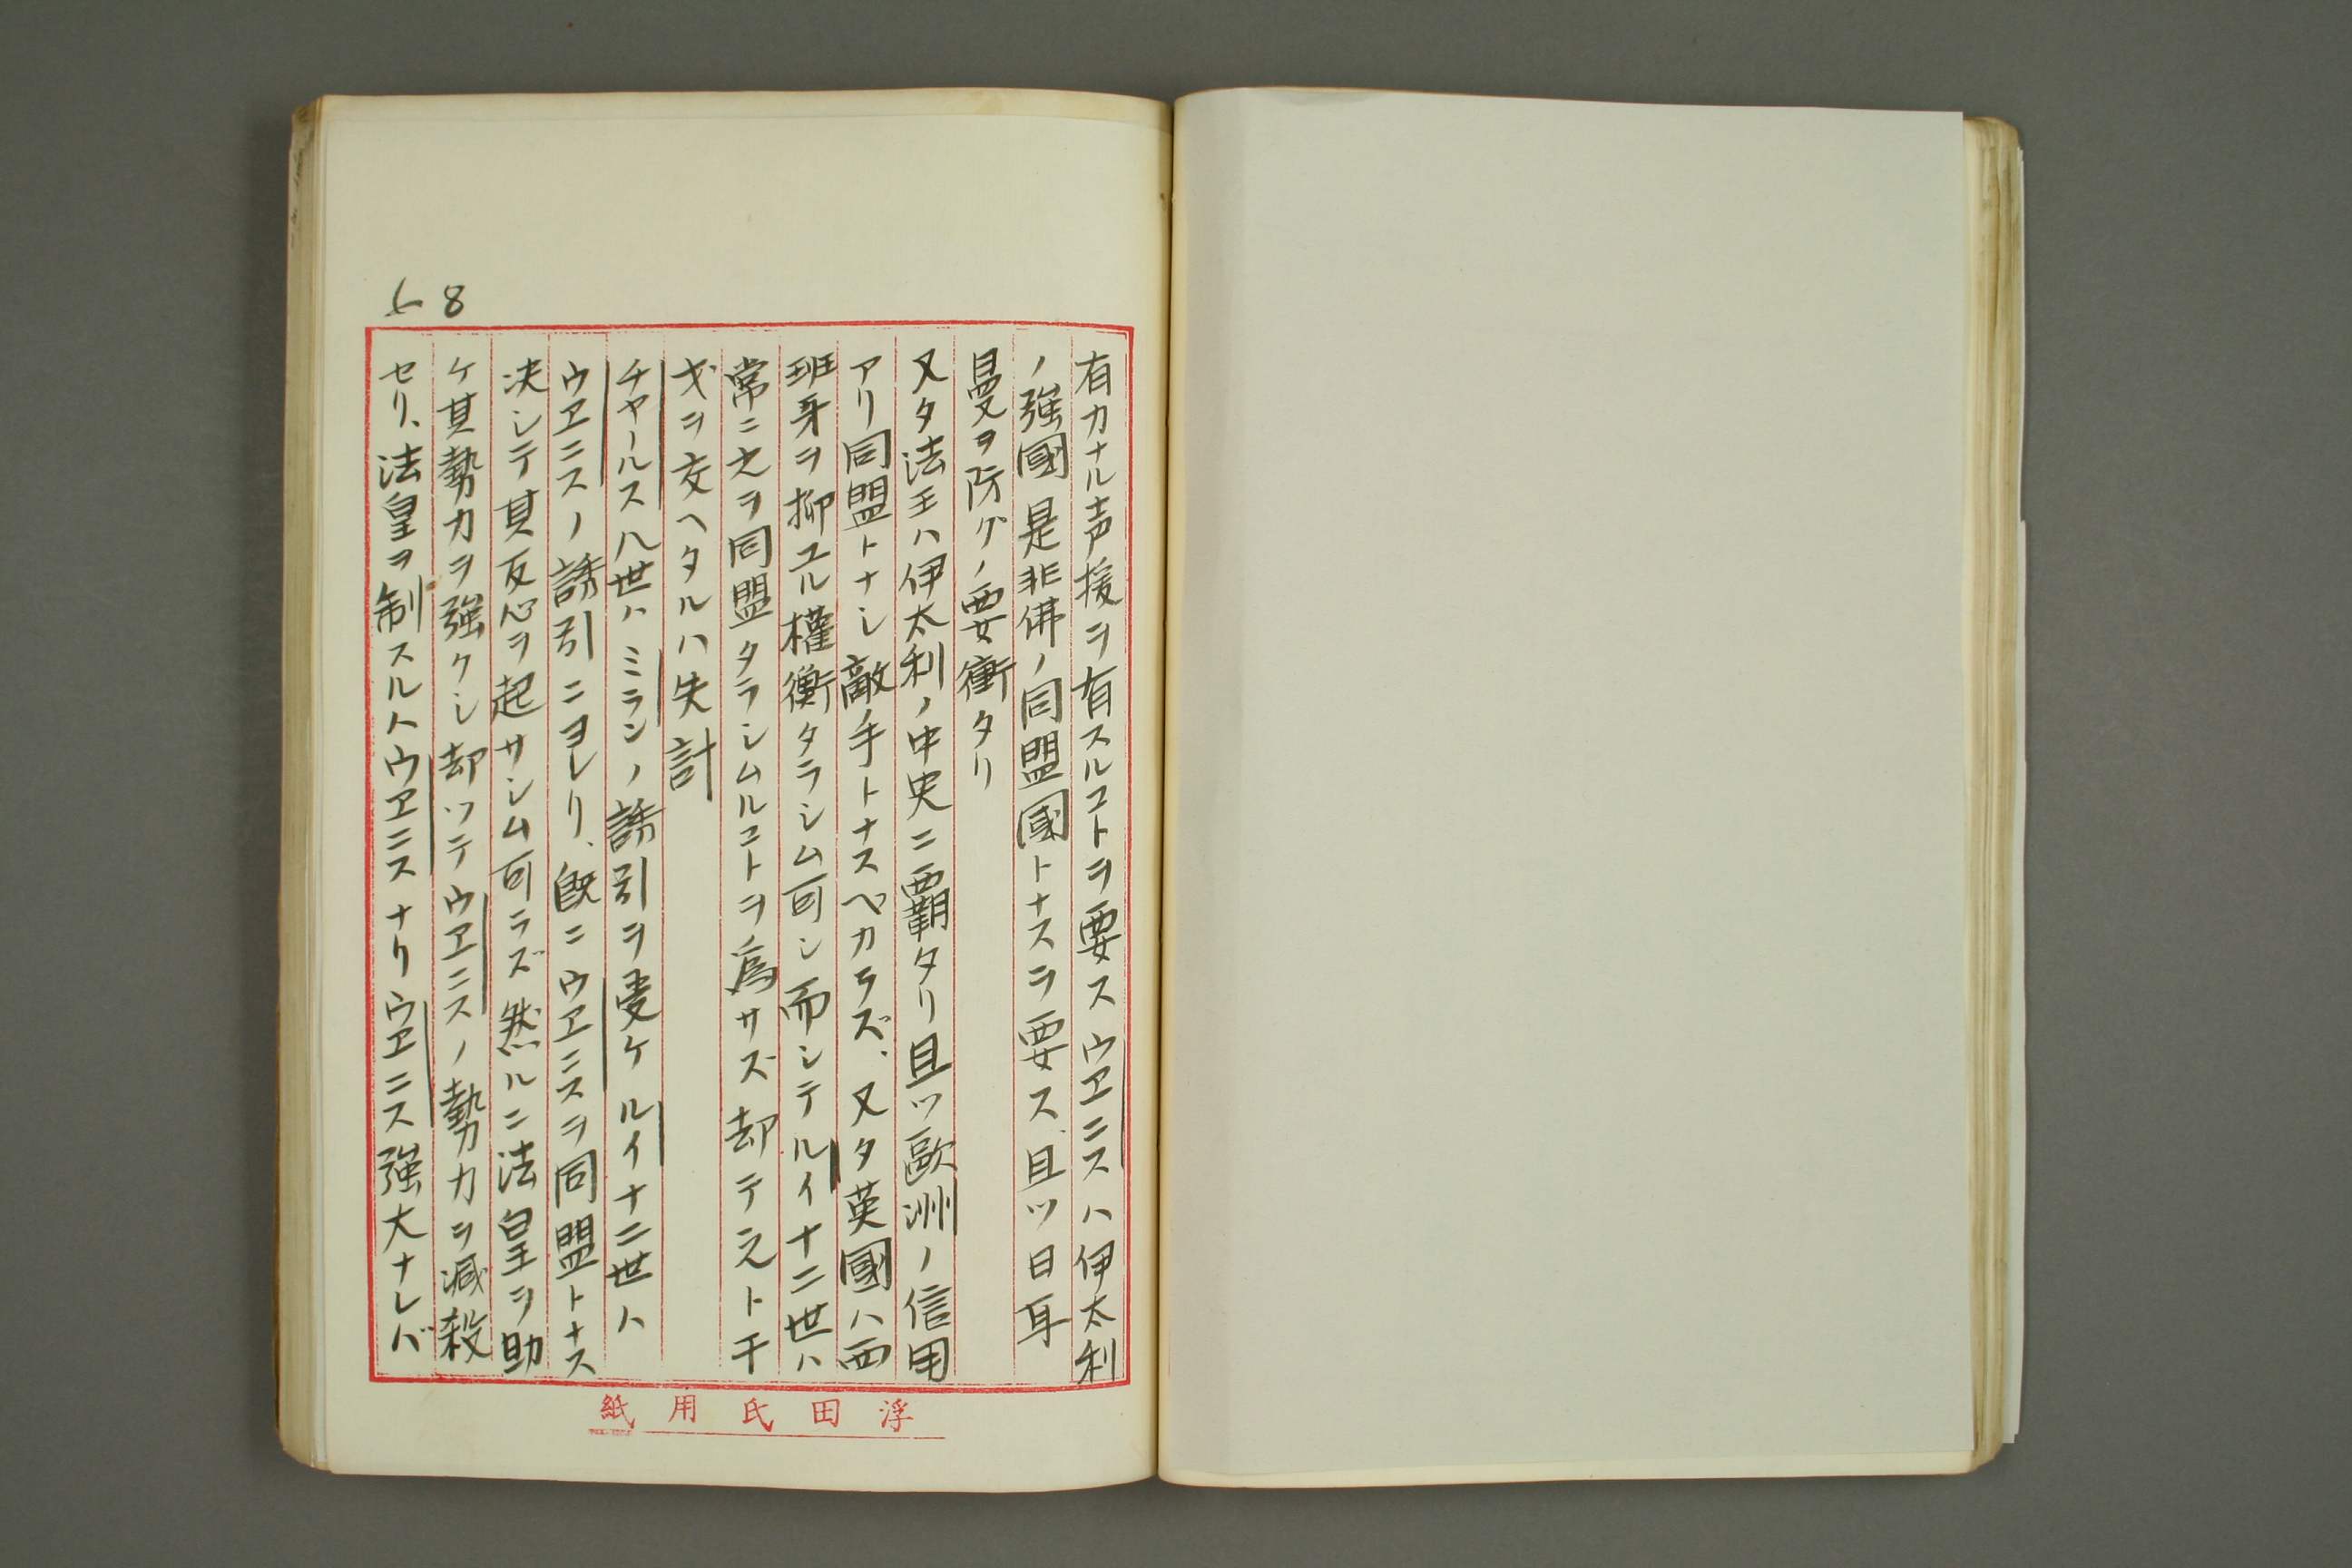 有力ナル声援ヲ有スルコトヲ要ス ウヱニスハ伊太利
ノ強國 是非佛ノ同盟國トナスヲ要ス、且ツ日耳
曼ヲ防グノ要衝タリ
又タ法王ハ伊太利ノ中央ニ覇タリ 且ツ歐洲ノ信用
アリ 同盟トナシ 敵手トナスベカラズ、又タ英國ハ西
班牙ヲ抑ユル權衡タラシム可シ 而シテルイ十二世ハ
常ニ之ヲ同盟タラシムルコトヲ為サズ 却テ之ト干
戈ヲ交ヘタルハ失計
チャールス八世ハ ミランノ誘引ヲ受ケ ルイ十二世ハ
ウヱニスノ誘引ニヨレリ、既ニウヱニスヲ同盟トナス
决シテ其反心ヲ起サシム可ラズ 然ルニ法皇ヲ助
ケ其勢力ヲ強クシ 却ツテウヱニスノ勢力ヲ減殺
セリ、法皇ヲ制スルハウヱニスナリ ウヱニス強大ナレバ
8
浮田氏用紙